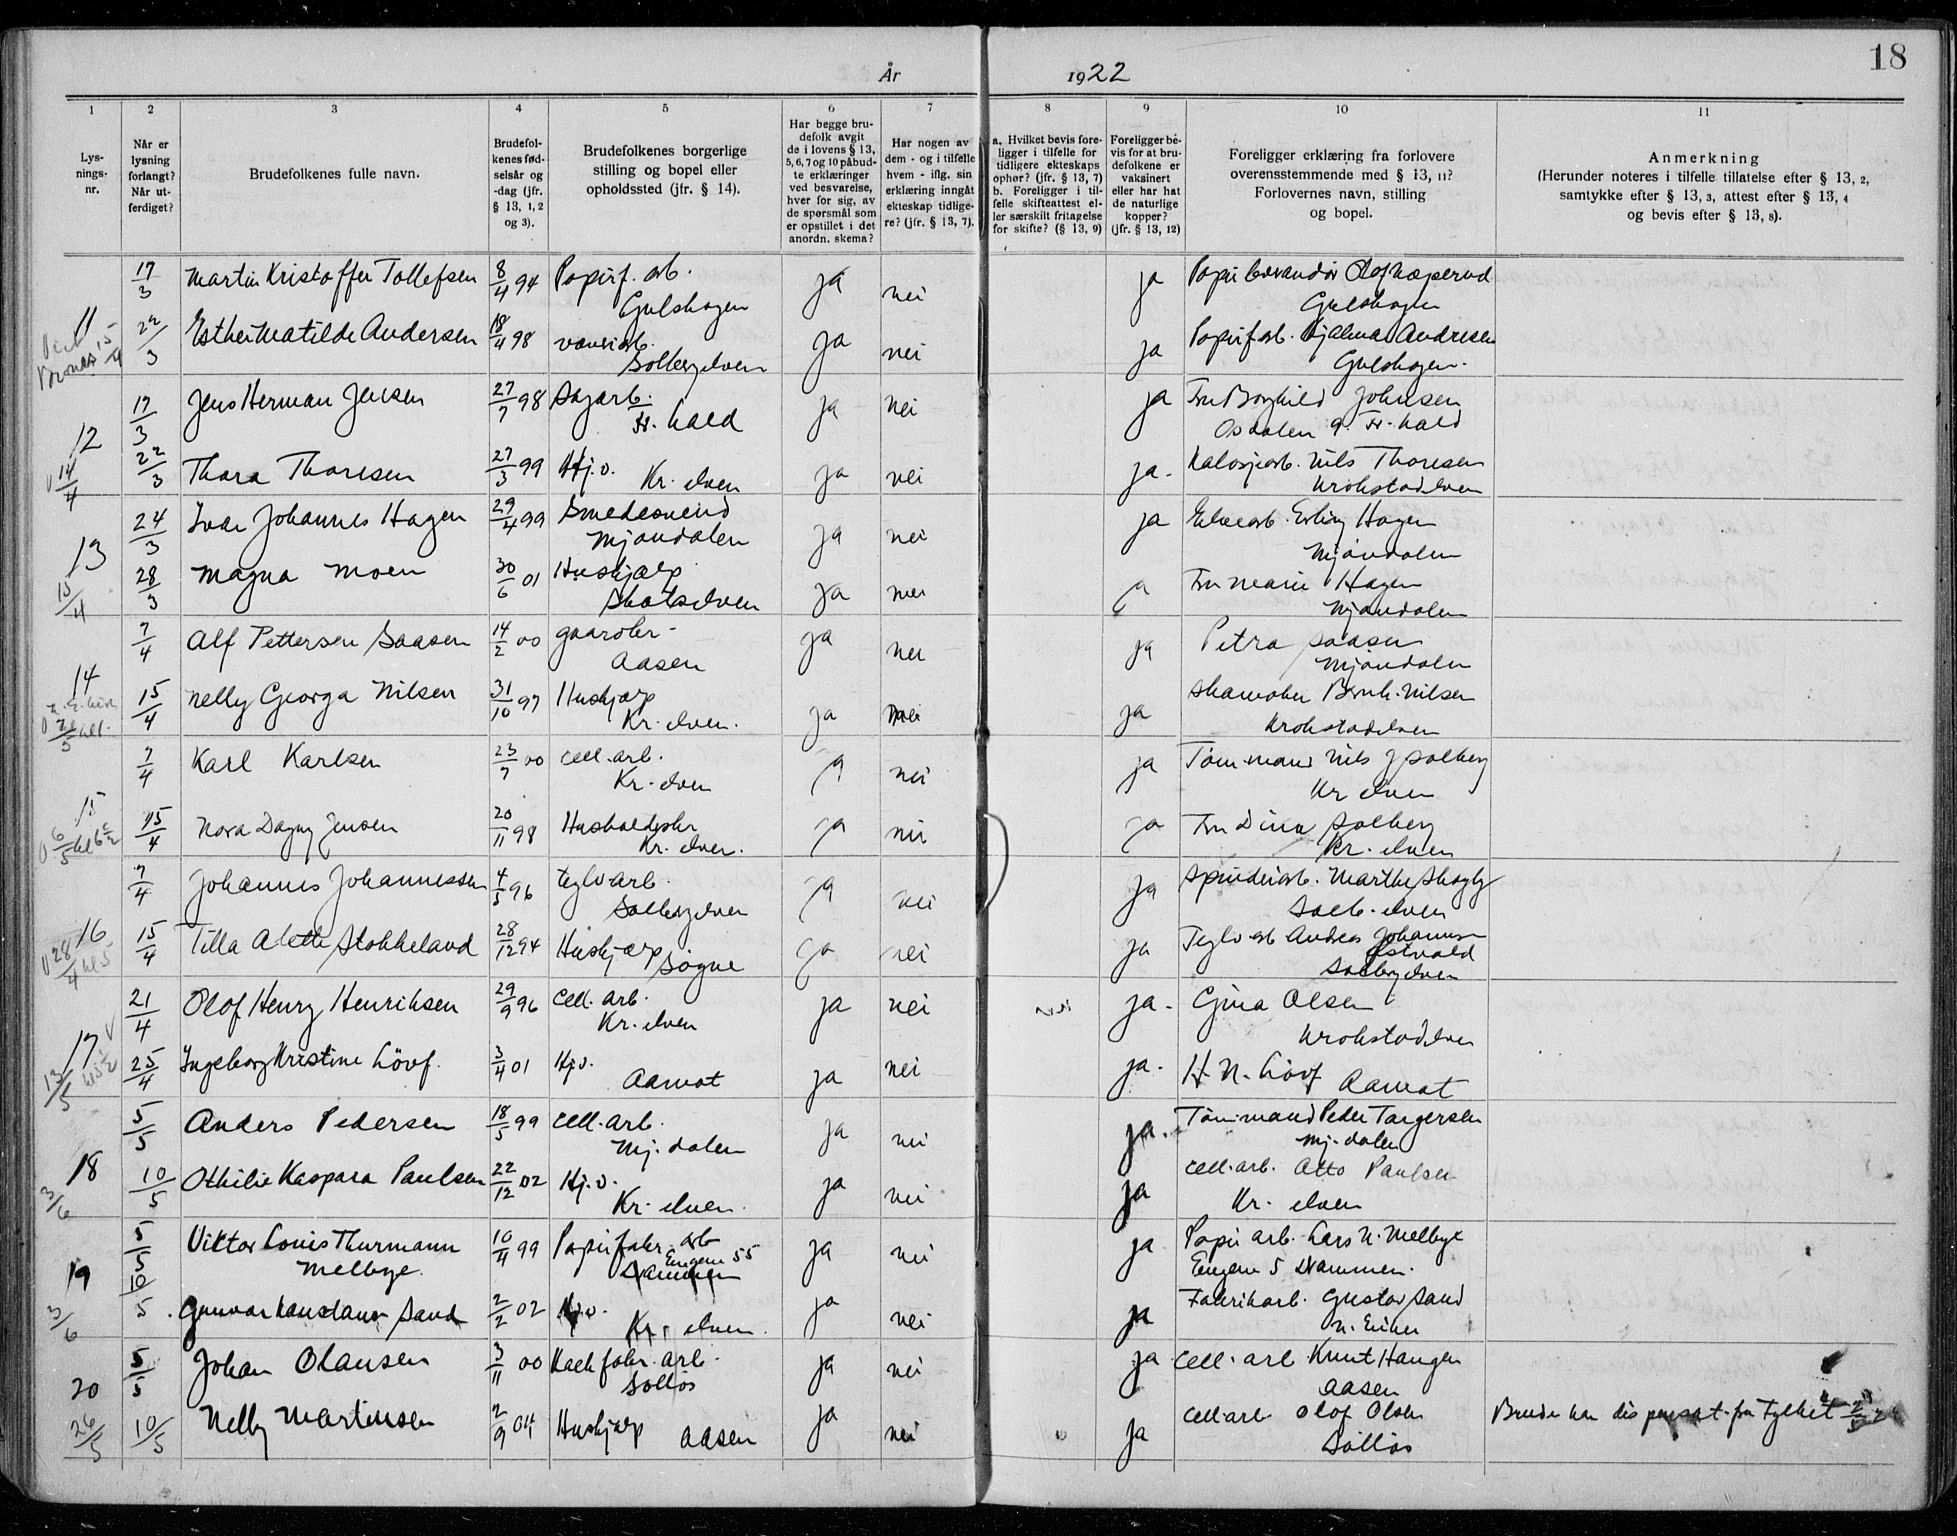 År 1922
18
1 2 3 4 5 6 7 8 9 10 11
Lysningsnr.
Når er lysning forlangt? Når utferdiget?
Brudefolkenes fulle navn.
Brudefolkenes fødselsår og -dag (jfr. § 13, 1, 2 og 3).
Brudefolkenes borgerlige stilling og bopel eller opholdssted (jfr. § 14).
Har begge brudefolk avgit de i lovens § 13, 5, 6, 7 og 10 påbudte erklæringer ved besvarelse, hver for sig, av de spørsmål som er opstillet i det anordn. skema?
Har nogen av dem - og i tilfelle hvem - iflg. sin erklæring inngått ekteskap tidligere? (jfr. § 13, 7).
a. Hvilket bevis foreligger i tilfelle for tidligere ekteskaps ophør? (jfr. § 13, 7) b. Foreligger i tilfelle skifteattest eller særskilt fritagelse for skifte? (§ 13, 9)
Foreligger bevis for at brudefolkene er vaksinert eller har hat de naturlige kopper? (jfr. § 13, 12)
Foreligger erklæring fra forlovere overensstemmende med § 13, 11? Forlovernes navn, stilling og bopel.
Anmerkning (Herunder noteres i tilfelle tillatelse efter § 13, 2, samtykke efter § 13, 3, attest efter § 13, 4 og bevis efter § 13, 8).
11 17/3 Martin Kristoffer Tollefsen 8/4 94 Papirf. arb. Gulskogen ja nei ja Gulskogen
22/3 Esther Matilde Andersen 18/4 98 Solbergelven ja nei ja Papirf arb. Hjalmar Andresen Gulskogen.
12 17/3 Jens Herman Jensen 27/7 98 Sagarb. Fr. hald ja nei ja Fru Borghild Johnsen Fr. hald
14/4 22/3 Thora Thoresen 27/3 99 Hj. v. Kr. elven ja nei ja. Nils Thoresen Krokstadelven
13 24/3 Ivar Johannes Hagen 29/4 99 Smedesvend Mjøndalen ja nei ja Erling Hagen Mjøndalen
15/4 28/3 Magna Moen 30/6 01 Hushjælp Skotselven ja nei ja Fru Marie Hagen Mjøndalen
14 7/4 Alf Pettersen Saasen 14/2 00 gaardbr. Aasen ja nei ja Petra Saasen Mjøndalen
15/4 Nelly Georga Nilsen 31/10 97 Hushjælp Kr. elven. ja nei ja Bernh. Nilsen Krokstadelven
15 7/4 Karl Karlsen 23/7 00 Cell. arb. Kr. elven ja nei ja Tøm. mand Nils J Solberg Kr elven
6/5 15/4 Nora Dagny Jensen 20/11 98 Kr. elven. ja nei ja Fru Dina Solberg Kr. elven
16 7/4 Johannes Johannessen 4/5 96 teglv arb. Solbergelven ja nei ja Spinderiarb. Marthe Skogly Solb. elven
28/4 kl 5 15/4 Tilla Alette Stokkeland 28/12 94 Hushjælp Søgne ja nei ja Teglv arb Andreas Johannsen Solbergelven
17 21/4 Olof Henry Henriksen 29/9 96 Cell. arb. Kr. elven ja nei ja. Gina Olsen Krokstadelven
13/5 25/4 Ingeborg Kristine Løvf. 3/4 01 Hj. v. Aamot ja nei ja. H. N. Løvf Aamot
18 5/5 Anders Pedersen 18/5 99 Cell. arb. Mj. dalen ja nei ja. Tøm. mand Peder Torgersen Mj. dalen
3/6 10/5 Othilie Kaspara Paulsen 22/12 02 Hj. v. Kr. elven. ja nei ja Cell. arb. Otto Paulsen Kr. elven
19 5/5 Viktor Louis Thurmann Melbye. 10/4 99 Papirfabr. arb Engene 55 Drammen ja nei ja Papir arb. Lars N. Melbye Engene 5 Drammen.
3/6 10/5 Gunvor Konstanse Sand 2/2 02 Hj. v. Kr. elven. ja nei ja Fabrikarb. Gustav Sand N. Eiker
20 5/5 Johan Olausen 3/11 00 fabr. arb. Solløs ja nei ja Cell. arb Knut Haugen Aasen
26/5 10/5 Nelly Martinsen 2/9 04 Hushjælp Aasen ja nei ja Cell arb. Olof Olsen Solløs Brude har dispensat. fra Fylket